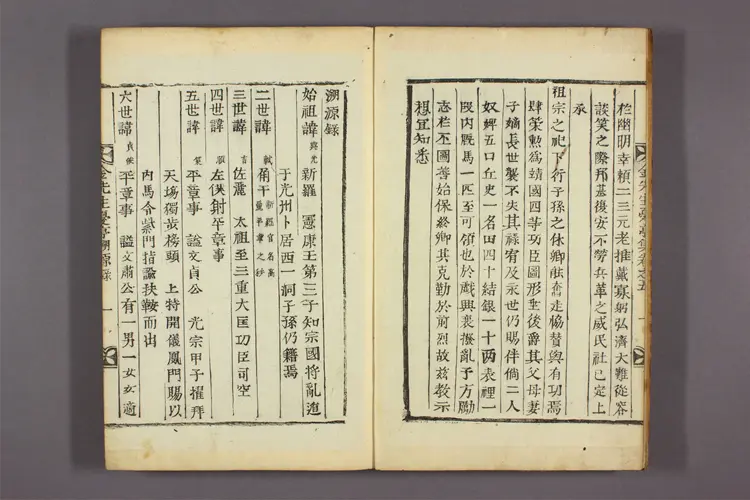 於幽明幸賴二三元老推戴寡躬弘濟大難從容
談笑之際邦基復安不勞兵革之威民社已定上
承
祖宗之祀下行子孫之休卿能奮走恊贊與有功焉
肆策勳爲靖國四等功臣圖形垂後爵其父母妻
子嫡長世襲不失其祿宥及永世仍賜伴倘二人
奴婢五口丘史一名田四十結銀一十兩表裡一
叚內厩馬一匹至可領也於戲興衰撥亂予方勵
志於丕圖善始保終卿其克勤於前烈故玆敎示
想宜知悉
金先生 亭集卷之五
溯源錄
始祖諱興光新羅 憲康王第三子知宗國將亂遁
于光州卜居西一洞子孫仍籍焉
二世諱軾角干新羅官名高麗平章之秩
三世諱吉佐麗 太祖至三重大匡功臣司空
四世諱 左僕射平章事
五世諱策平章事 謚文貞公 光宗甲子擢拜
天場獨步榜頭 上特開儀鳳門賜以
內馬令紫門指諭扶鞍而出
六世諱貞俊平章事 謚文肅公有一男一女女適
金先生 亭 溯源錄 一